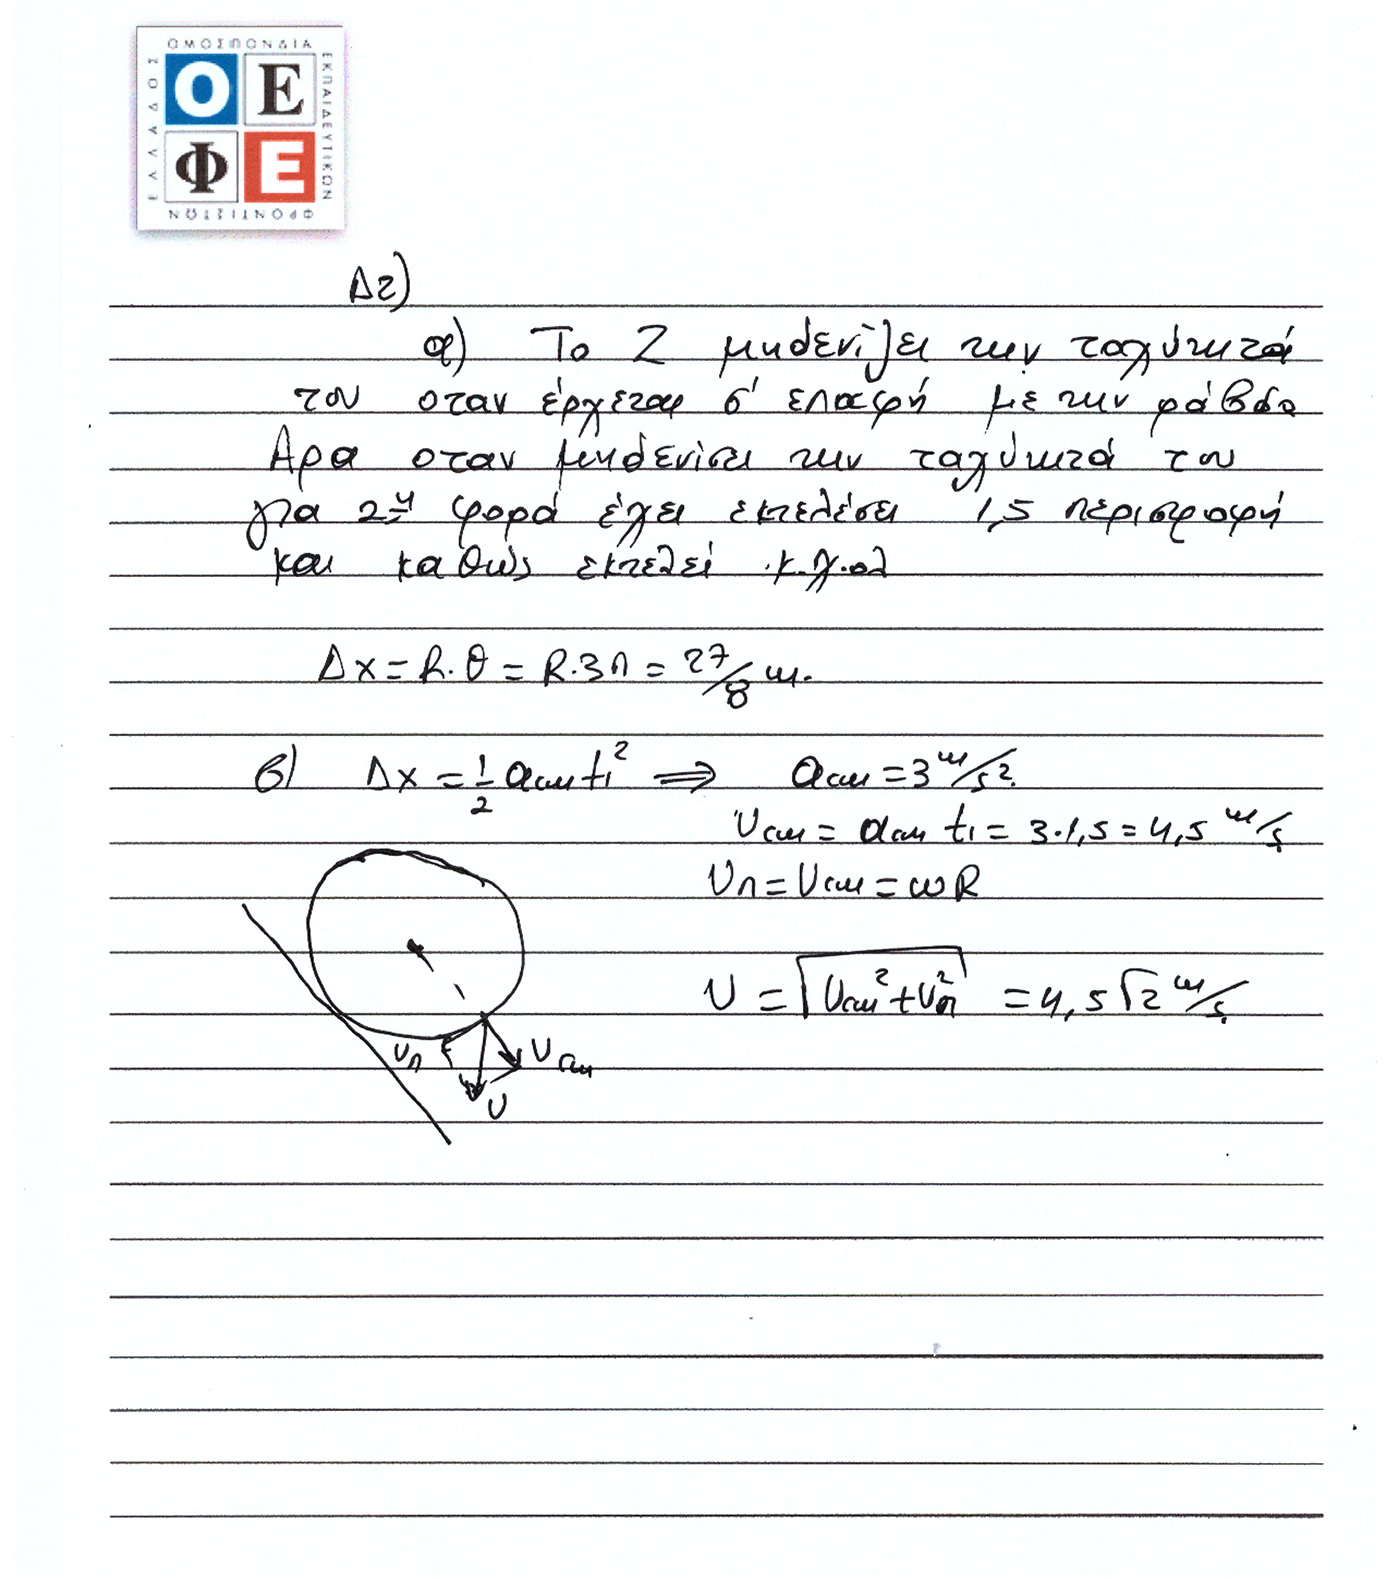 ΟΜΟΣΠΟΝΔΙΑ
ΕΚΠΑΙΔΕΥΤΙΚΩΝ
ΦΡΟΝΤΙΣΤΩΝ
ΕΛΛΑΔΟΣ
Ο Ε
Φ Ε
Δ2)
α) Το Ζ μηδενίζει την ταχύτητά
του οταν έρχεται σ' επαφή με την ράβδο
Αρα οταν μηδενίσει την ταχύτητά του
για 2η φορά έχει εκτελέσει 1,5 περιστροφή
και καθώς εκτελεί κ.χ.ολ
Δx = R·θ = R·3π = 27/8 m.
β) Δx = 1/2 acm t1² ⟹ acm = 3 m/s².
Ucm = acm t1 = 3·1,5 = 4,5 m/s
Uπ = Ucm = ωR
U = √(Ucm² + Uπ²) = 4,5 √2 m/s
Uπ Ucm
U